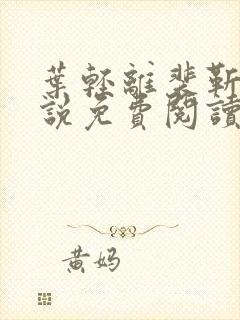 葉輕離裴靳
說免費閱讀
黃媽